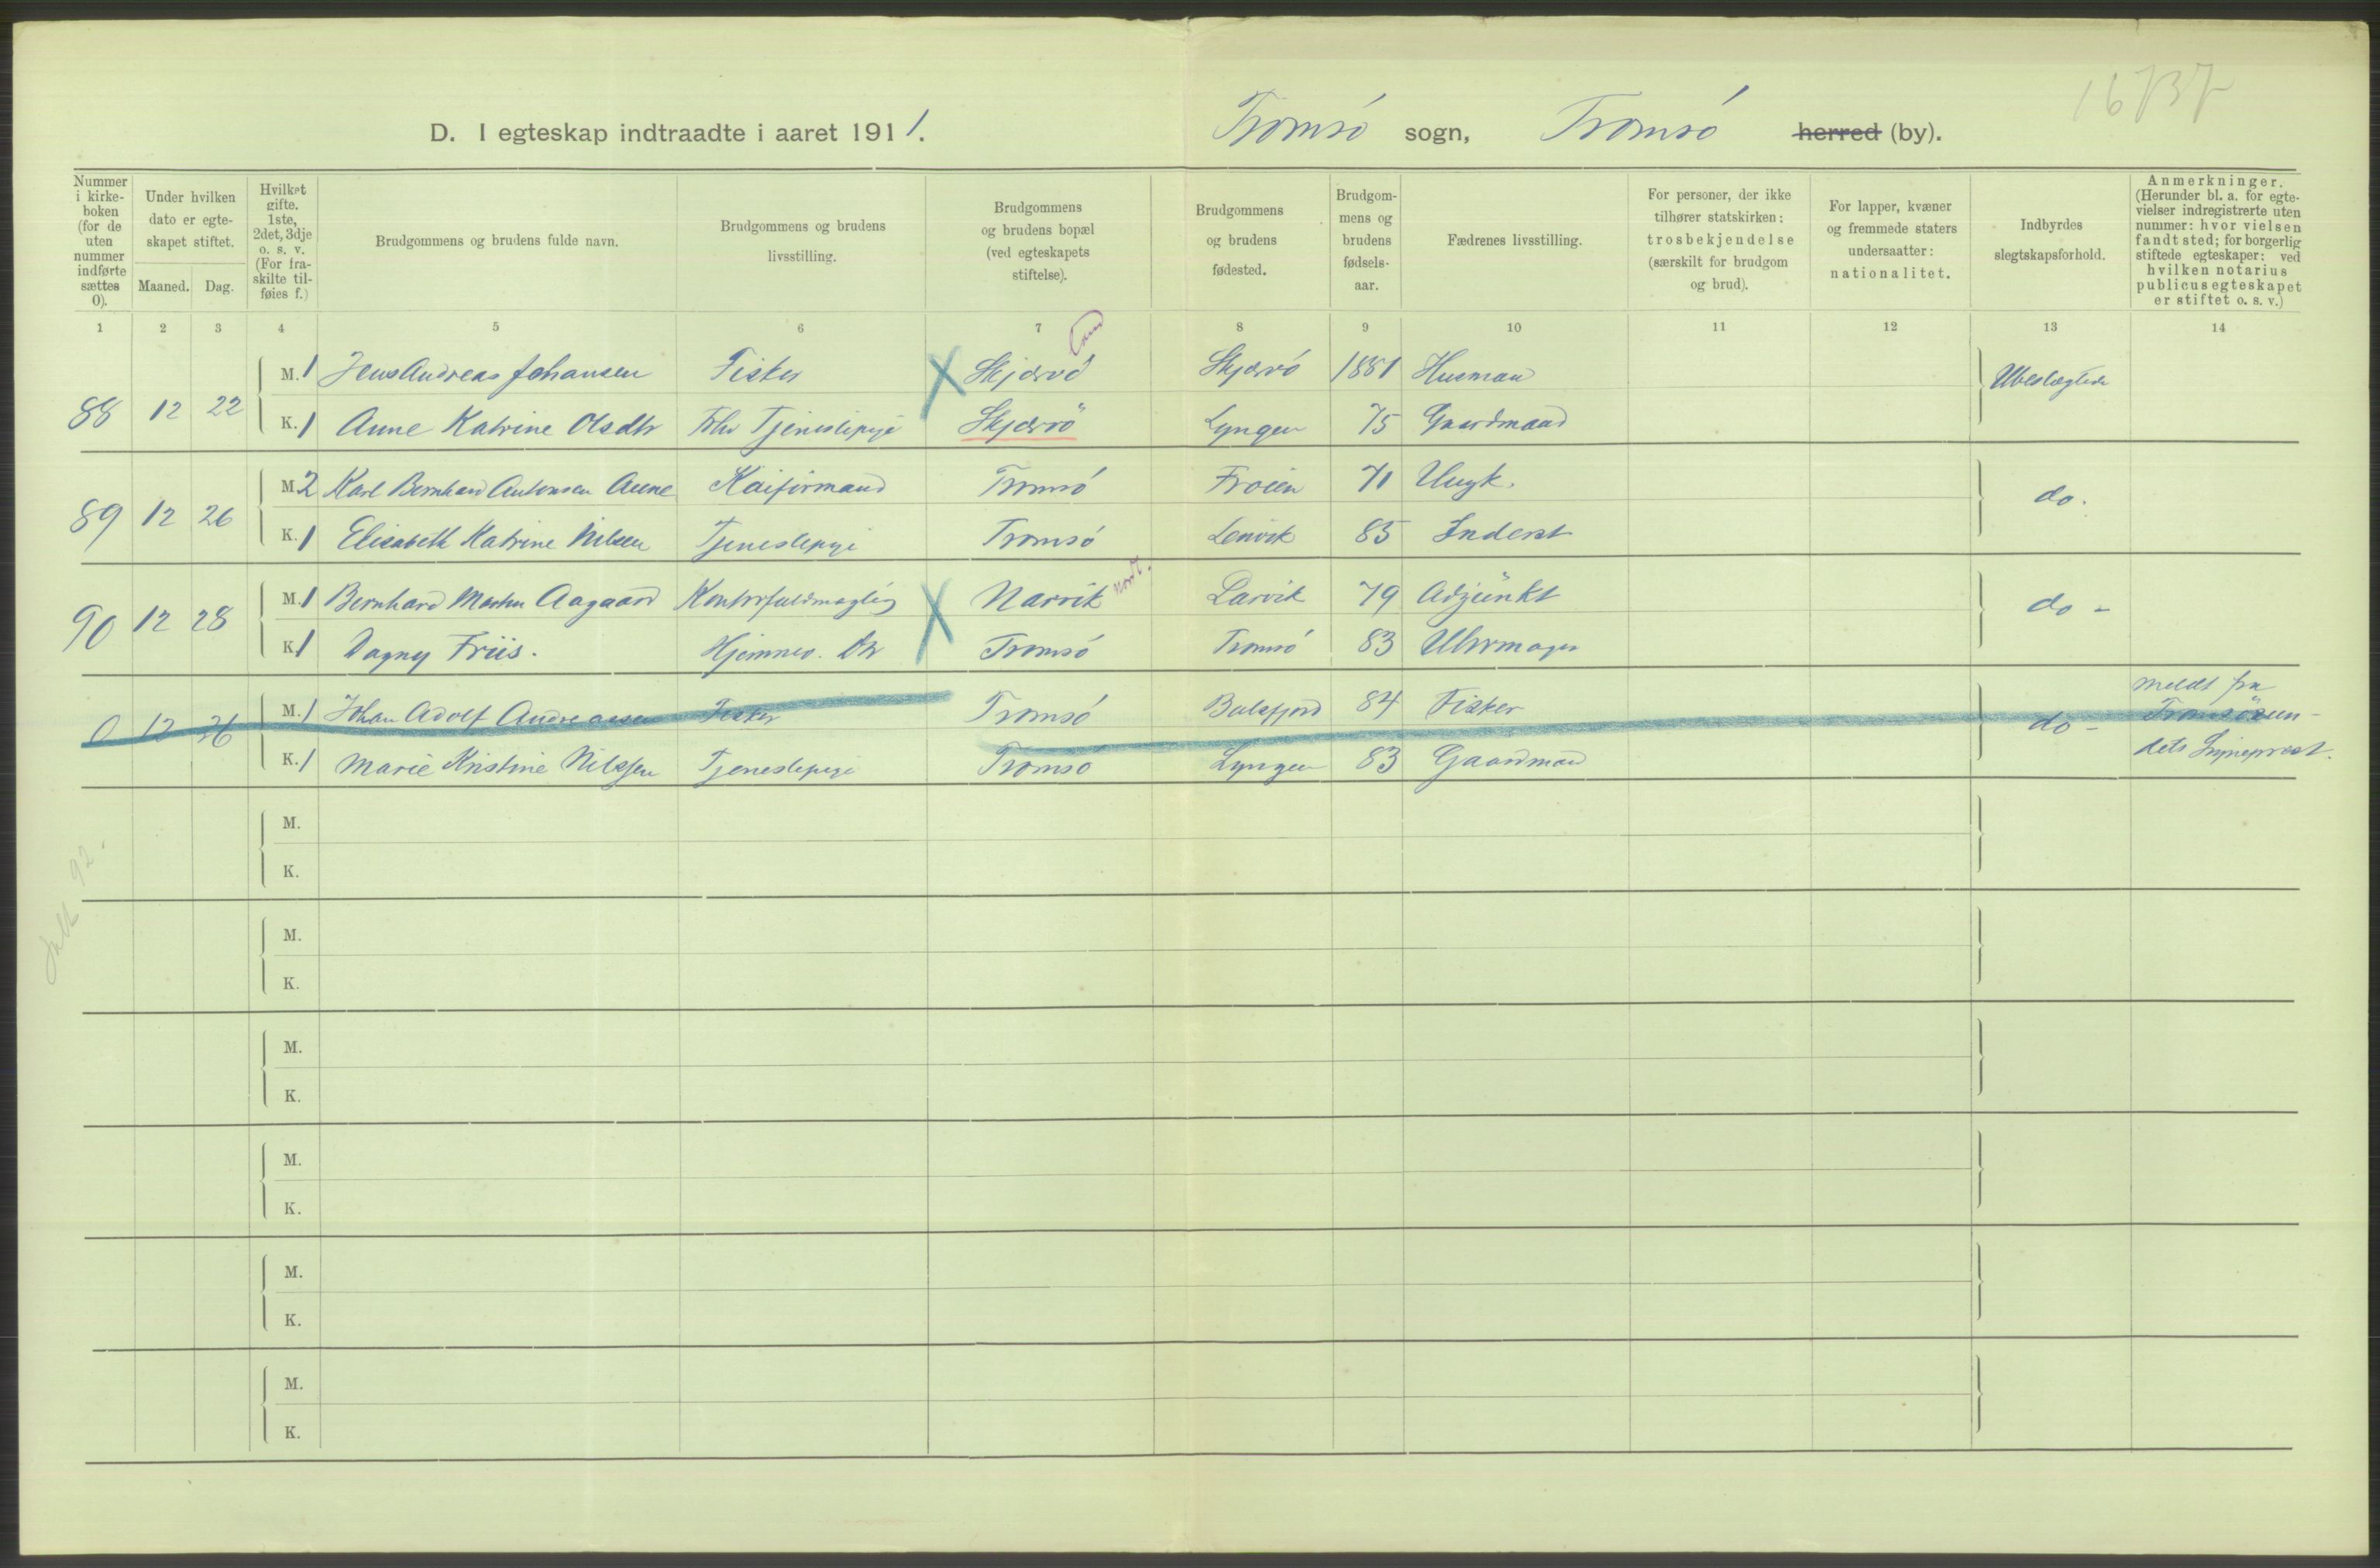 16737
D. I egteskap indtraadte i aaret 1911. Tromsö sogn, Tromsö herred (by).
Nummer i kirke-boken (for de uten nummer indførte sættes 0).
Under hvilken dato er egte-skapet stiftet.
Maaned. Dag.
Hvilket gifte. 1ste, 2det, 3dje o. s. v. (For fra-skilte til-føies f.)
Brudgommens og brudens fulde navn.
Brudgommens og brudens livsstilling.
Brudgommens og brudens bopæl (ved egteskapets stiftelse).
Brudgommens og brudens fødested.
Brudgom-mens og brudens fødsels-aar.
Fædrenes livsstilling.
For personer, der ikke tilhører statskirken: trosbekjendelse (særskilt for brudgom og brud).
For lapper, kvæner og fremmede staters undersaatter: nationalitet.
Indbyrdes slegtskapsforhold.
Anmerkninger. (Herunder bl. a. for egte-vielser indregistrerte uten nummer: hvor vielsen fandt sted; for borgerlig stiftede egteskaper: ved hvilken notarius publicus egteskapet er stiftet o. s. v.)
1 2 3 4 5 6 7 8 9 10 11 12 13 14
M. 1 Jens Andreas Johansen Fisker Skjervö Skjervö 1881 Husman Ubeslegtede
88 12 22
K. 1 Anne Katrine Olsdtr Tjenestepige Skjervö Lyngen 75 Gaardmand
M. 2 Karl Bernhard Antonsen Aune Kaiformand Tromsö Froien 71 Ungk.
89 12 26 do.
K. 1 Elisabeth Katrine Nilsen Tjenestepige Tromsö Lenvik 85 Inderst
M. 1 Bernhard Martin Aagaard Kontorfuldmægtig Narvik Nordl. Larvik 79 Adjünkt
90 12 28 do -
K. 1 Dagny Friis. Hjemmev. Dtr Tromsö Tromsö 83 Uhrmager
M. 1 Johan Adolf Andreassen Fisker Tromsö Balsfjord 84 Fisker meldt fra
0 12 26 do - Tromsösun-
K. 1 Marie Kristine Nilssen Tjenestepige Tromsö Lyngen 83 Gaardmand dets Sogneprest.
M.
K.
M.
K.
M.
K.
M.
K.
M.
K.
M.
K.